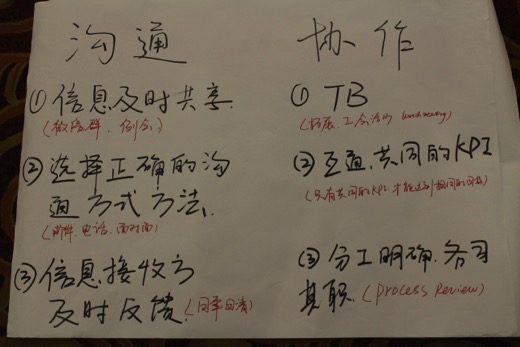 沟通
① 信息及时共享.
(微信群、例会)
② 选择正确的沟
通方式方法.
(邮件、电话、面对面)
③ 信息接收方
及时反馈.(日事日清)
协作
① TB
(拓展、工会活动
② 互通、共同的KPI
(只有共同的KPI. 才能达到相同的目标)
③ 分工明确.各司
其职.(Process Review)